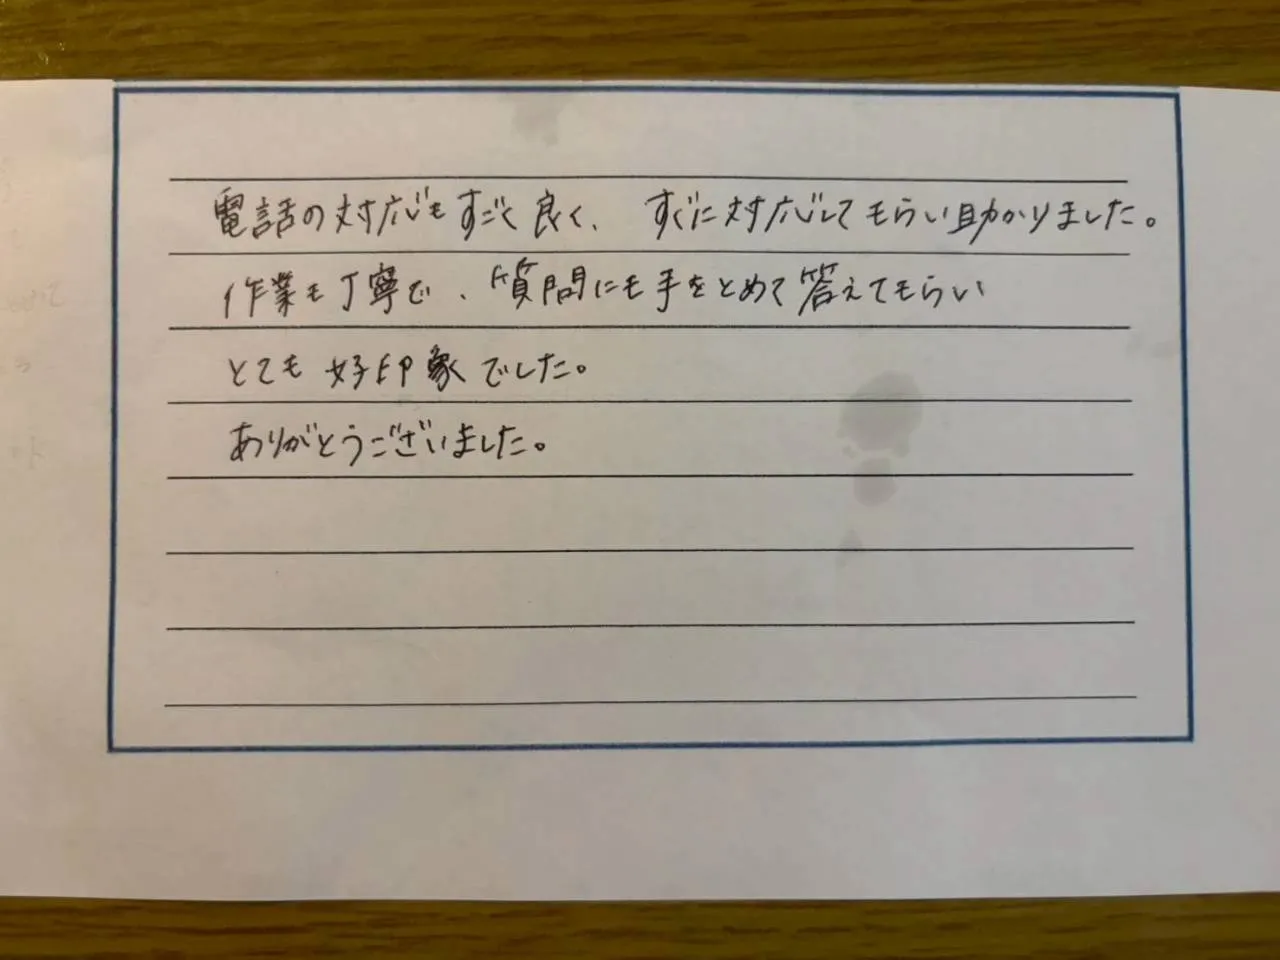 電話の対応もすごく良く、すぐに対応してもらい助かりました。
作業も丁寧で、質問にも手をとめて答えてもらい
とても好印象でした。
ありがとうございました。